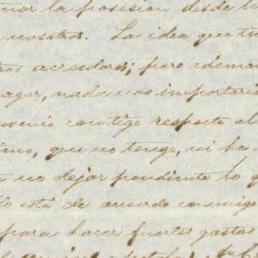 mar la posesion desde
nosotros. La idea que tu
acreedores; pero ademas
pagar, nada nos importaria
convenio contigo respecto al
que no tengo, ni he
no dejar pendiente lo q
está de acuerdo conmigo
para hacer fuertes gastos